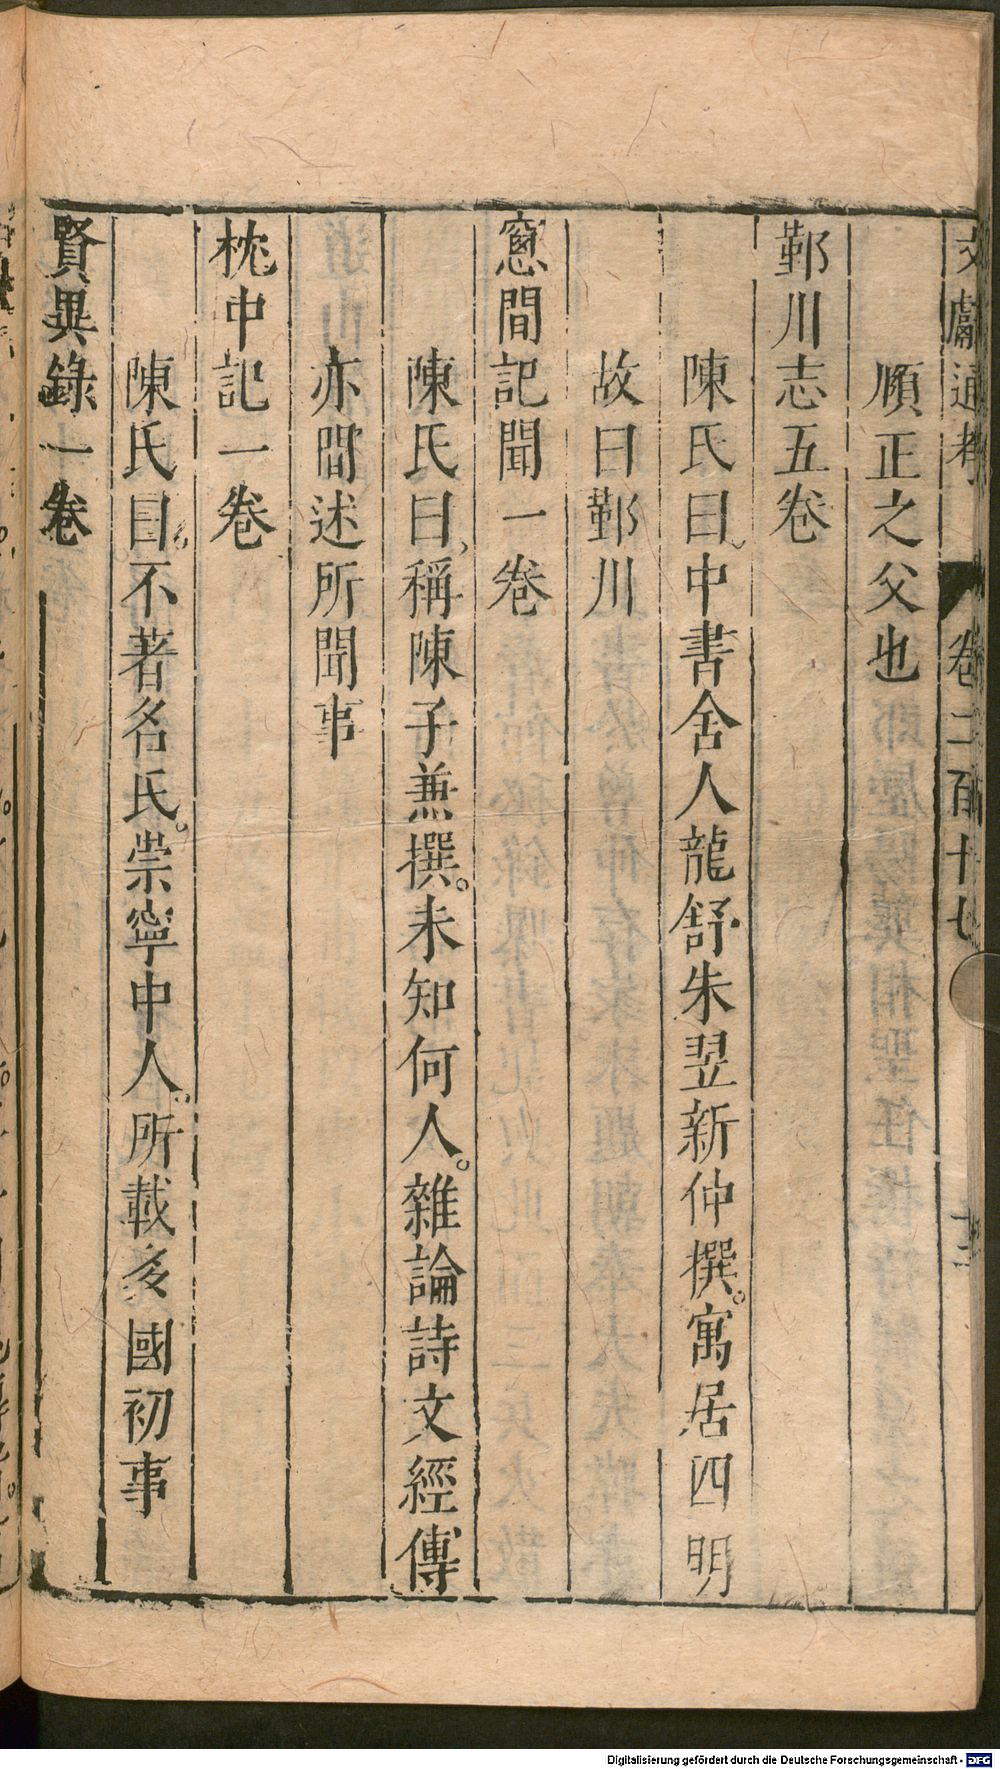 文獻通考 卷二百十七 十三
順正之父也
鄞川志五卷
陳氏曰中書舍人龍舒朱翌新仲撰。寓居四明
故曰鄞川
窻間記聞一卷
陳氏曰稱陳子兼撰。未知何人。雜論詩文經傳
亦間述所聞事
枕中記一卷
陳氏曰不著名氏。崇寧中人。所載多國初事
賢異錄一卷
Digitalisierung gefördert durch die Deutsche Forschungsgemeinschaft - DFG